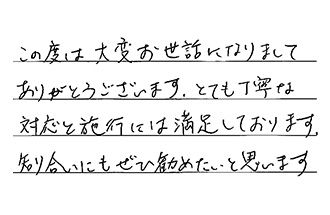 この度は大変お世話になりまして
ありがとうございます。とても丁寧な
対応と施行には満足しております。
知り合いにもぜひ勧めたいと思います